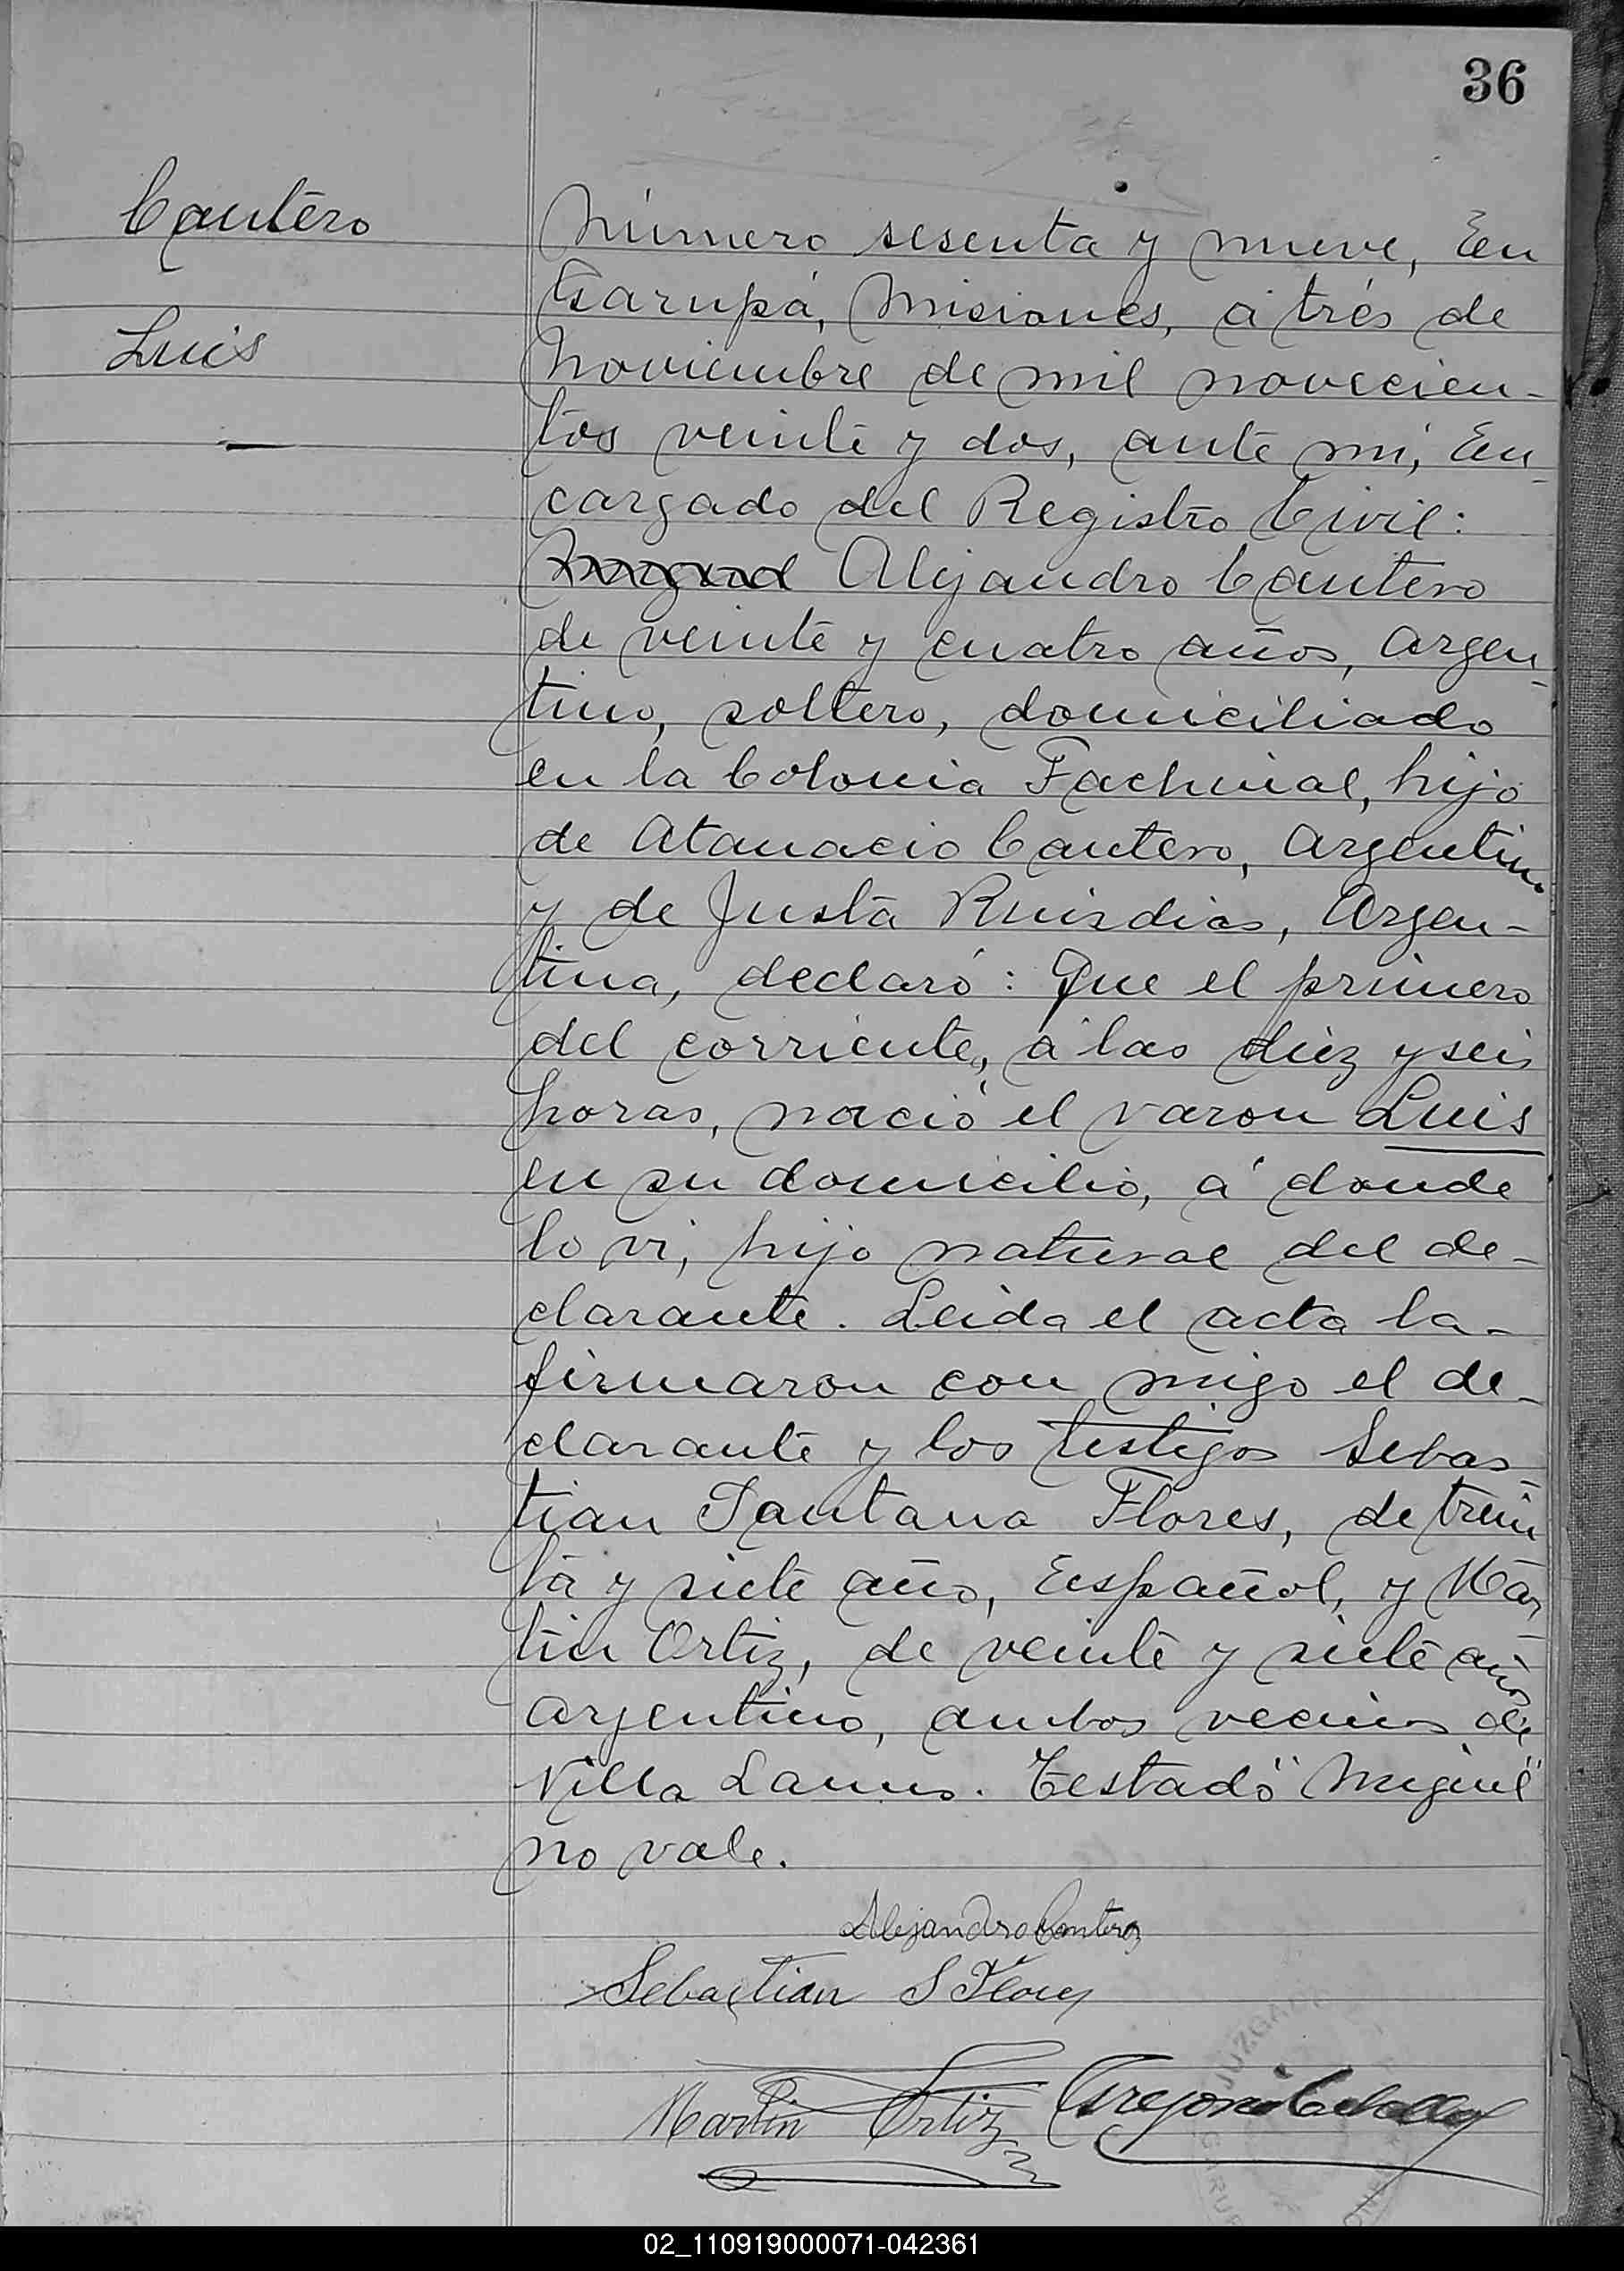 36
Cantero
Luis
Número sesenta y nueve, En
Garupá, Misiones, á trés de
Noviembre de mil novecien-
tos veinte y dos, ante mi, En-
cargado del Registro Civil:
Alejandro Cantero
de veinte y cuatro años, argen-
tino, soltero, domiciliado
en la Colonia Fachinal, hijo
de Atanacio Cantero, Argentino
y de Justa Ruisdias, Argen-
tina, declaró: Que el primero
del corriente, á las diez y seis
horas, nació el varon Luis
en su domicilio, á donde
lo vi, hijo natural del de-
clarante. Leida el acta la-
firmaron con migo el de-
clarante y los testigos Sebas-
tian Santana Flores, de trein
ta y siete año, Español, y Mar
tin Ortiz, de veinte y siete años
argentino, ambos vecinos de
Villa Lanus. Testado "Miguel"
no vale.
Alejandro Cantero
Sebastian S Flores
Martin Ortiz Gregorio Cabellos
JUZGADO
GARUP
02_110919000071-042361